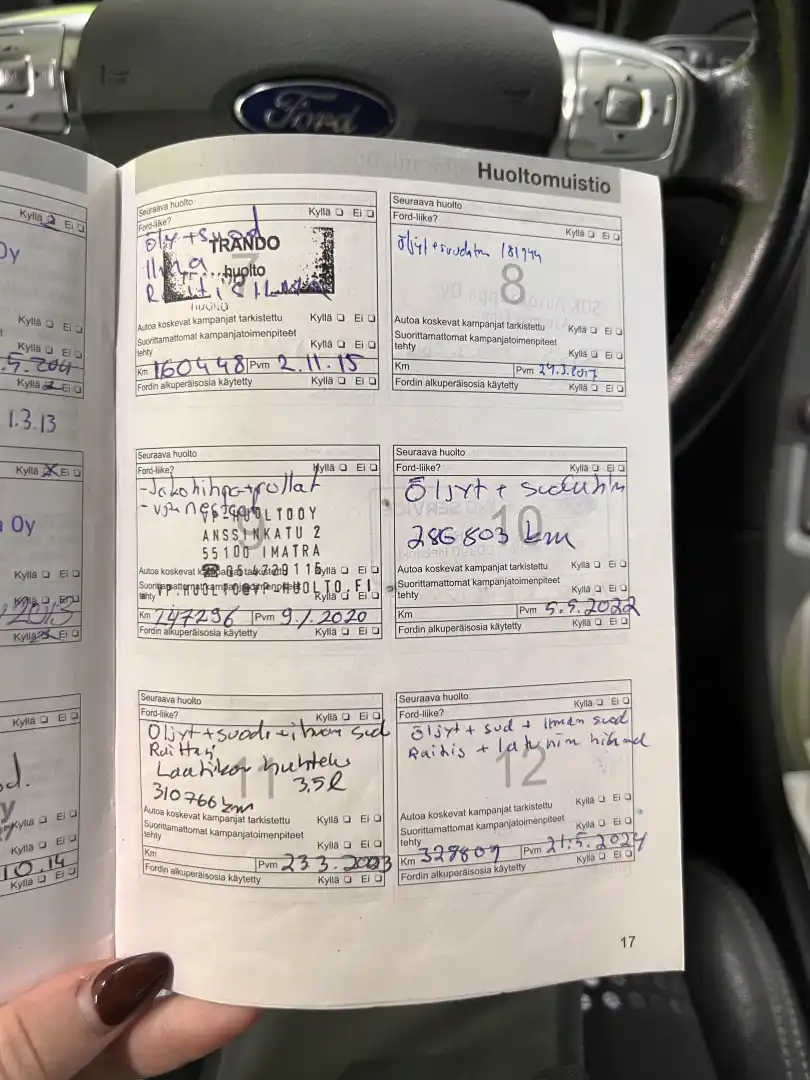 Ford
Huoltomuistio
Kyllä Ei
Oy
Kyllä Ei
Kyllä Ei
Kyllä Ei
1.3.13
Kyllä Ei
Oy
Kyllä Ei
Kyllä Ei
2013
Kyllä Ei
Kyllä Ei
Kyllä Ei
Kyllä Ei
10.14
Kyllä Ei
Seuraava huolto
Ford-liike? Kyllä Ei
TRANDO
huolto
Autoa koskevat kampanjat tarkistettu Kyllä Ei
Suorittamattomat kampanjatoimenpiteet
tehty Kyllä Ei
Km 160448 Pvm 2.11.15
Fordin alkuperäisosia käytetty Kyllä Ei
Seuraava huolto
Ford-liike? Kyllä Ei
181944
8
Autoa koskevat kampanjat tarkistettu Kyllä Ei
Suorittamattomat kampanjatoimenpiteet
tehty Kyllä Ei
Km Pvm
Fordin alkuperäisosia käytetty Kyllä Ei
Seuraava huolto
Ford-liike? Kyllä Ei
9
VP-HUOLTO OY
ANSSINKATU 2
55100 IMATRA
Autoa koskevat kampanjat tarkistettu Kyllä Ei
Suorittamattomat kampanjatoimenpiteet
tehty Kyllä Ei
Km 247296 Pvm 9.1.2020
Fordin alkuperäisosia käytetty Kyllä Ei
Seuraava huolto
Ford-liike? Kyllä Ei
Öljyt +
10
286803 km
Autoa koskevat kampanjat tarkistettu Kyllä Ei
Suorittamattomat kampanjatoimenpiteet
tehty Kyllä Ei
Km Pvm 5.5.2022
Fordin alkuperäisosia käytetty Kyllä Ei
Seuraava huolto
Ford-liike? Kyllä Ei
Öljyt +
11
3,5 l
310766 km
Autoa koskevat kampanjat tarkistettu Kyllä Ei
Suorittamattomat kampanjatoimenpiteet
tehty Kyllä Ei
Km Pvm 23.3.2023
Fordin alkuperäisosia käytetty Kyllä Ei
Seuraava huolto
Ford-liike? Kyllä Ei
Öljyt + suod + ilman suod
Raitis +
12
Autoa koskevat kampanjat tarkistettu Kyllä Ei
Suorittamattomat kampanjatoimenpiteet
tehty Kyllä Ei
Km 328809 Pvm 21.5.2024
Fordin alkuperäisosia käytetty Kyllä Ei
17